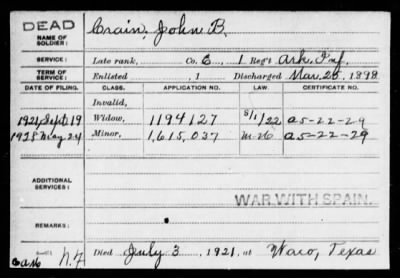 DEAD
NAME OF SOLDIER: Crain, John B.
SERVICE: Late rank, Co. E, 1 Reg't Ark. Inf.
TERM OF SERVICE: Enlisted , 1 Discharged Mar. 25, 1898
DATE OF FILING. CLASS. APPLICATION NO. LAW. CERTIFICATE NO.
Invalid,
1921 Sept. 19 Widow, 1194127 5/1/22 a5-22-29
1928 May 24 Minor, 1,615,037 m-26 a5-22-29
ADDITIONAL SERVICES:
WAR WITH SPAIN.
REMARKS:
N.F. Died July 3, 1921, at Waco, Texas